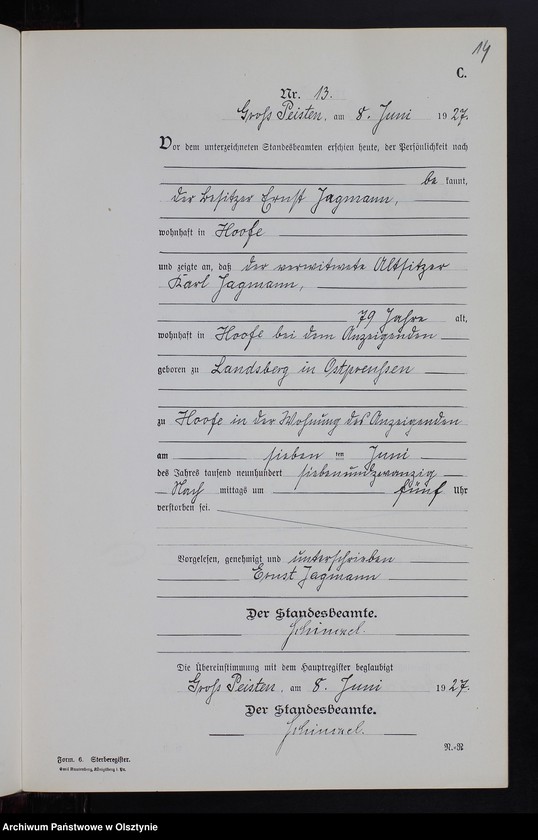 14
C.
Nr. 13.
Gross Peisten, am 8. Juni 1927.
Vor dem unterzeichneten Standesbeamten erschien heute, der Persönlichkeit nach
be kannt,
der Besitzer Ernst Jagmann,
wohnhaft in Hoofe
und zeigte an, daß der verwitwete Altsitzer
Karl Jagmann,
79 Jahre alt,
wohnhaft in Hoofe bei dem Anzeigenden
geboren zu Landsberg in Ostpreußen
zu Hoofe in der Wohnung des Anzeigenden
am sieben ten Juni
des Jahres tausend neunhundert siebenundzwanzig
Nach mittags um fünf Uhr
verstorben sei.
Vorgelesen, genehmigt und unterschrieben
Ernst Jagmann
Der Standesbeamte.
Schimmel.
Die Übereinstimmung mit dem Hauptregister beglaubigt
Gross Peisten, am 8. Juni 1927.
Der Standesbeamte.
Schimmel.
R.-R
Form. 6. Sterberegister.
Archiwum Państwowe w Olsztynie